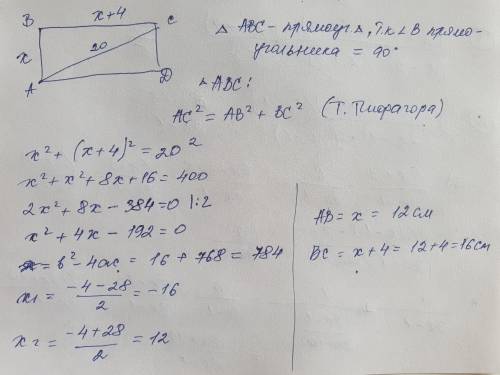 B x+4 C
x 20
A D
△ ABC - прямоуг. △, т.к ∠ B прямо-
угольника = 90°
△ ABC:
AC² = AB² + BC² (Т. Пифагора)
x² + (x+4)² = 20²
x² + x² + 8x + 16 = 400
2x² + 8x - 384 = 0 |:2
x² + 4x - 192 = 0
= b² - 4ac = 16 + 768 = 784
x₁ = (-4-28)/2 = -16
x₂ = (-4+28)/2 = 12
AB = x = 12 см
BC = x+4 = 12+4 = 16 см